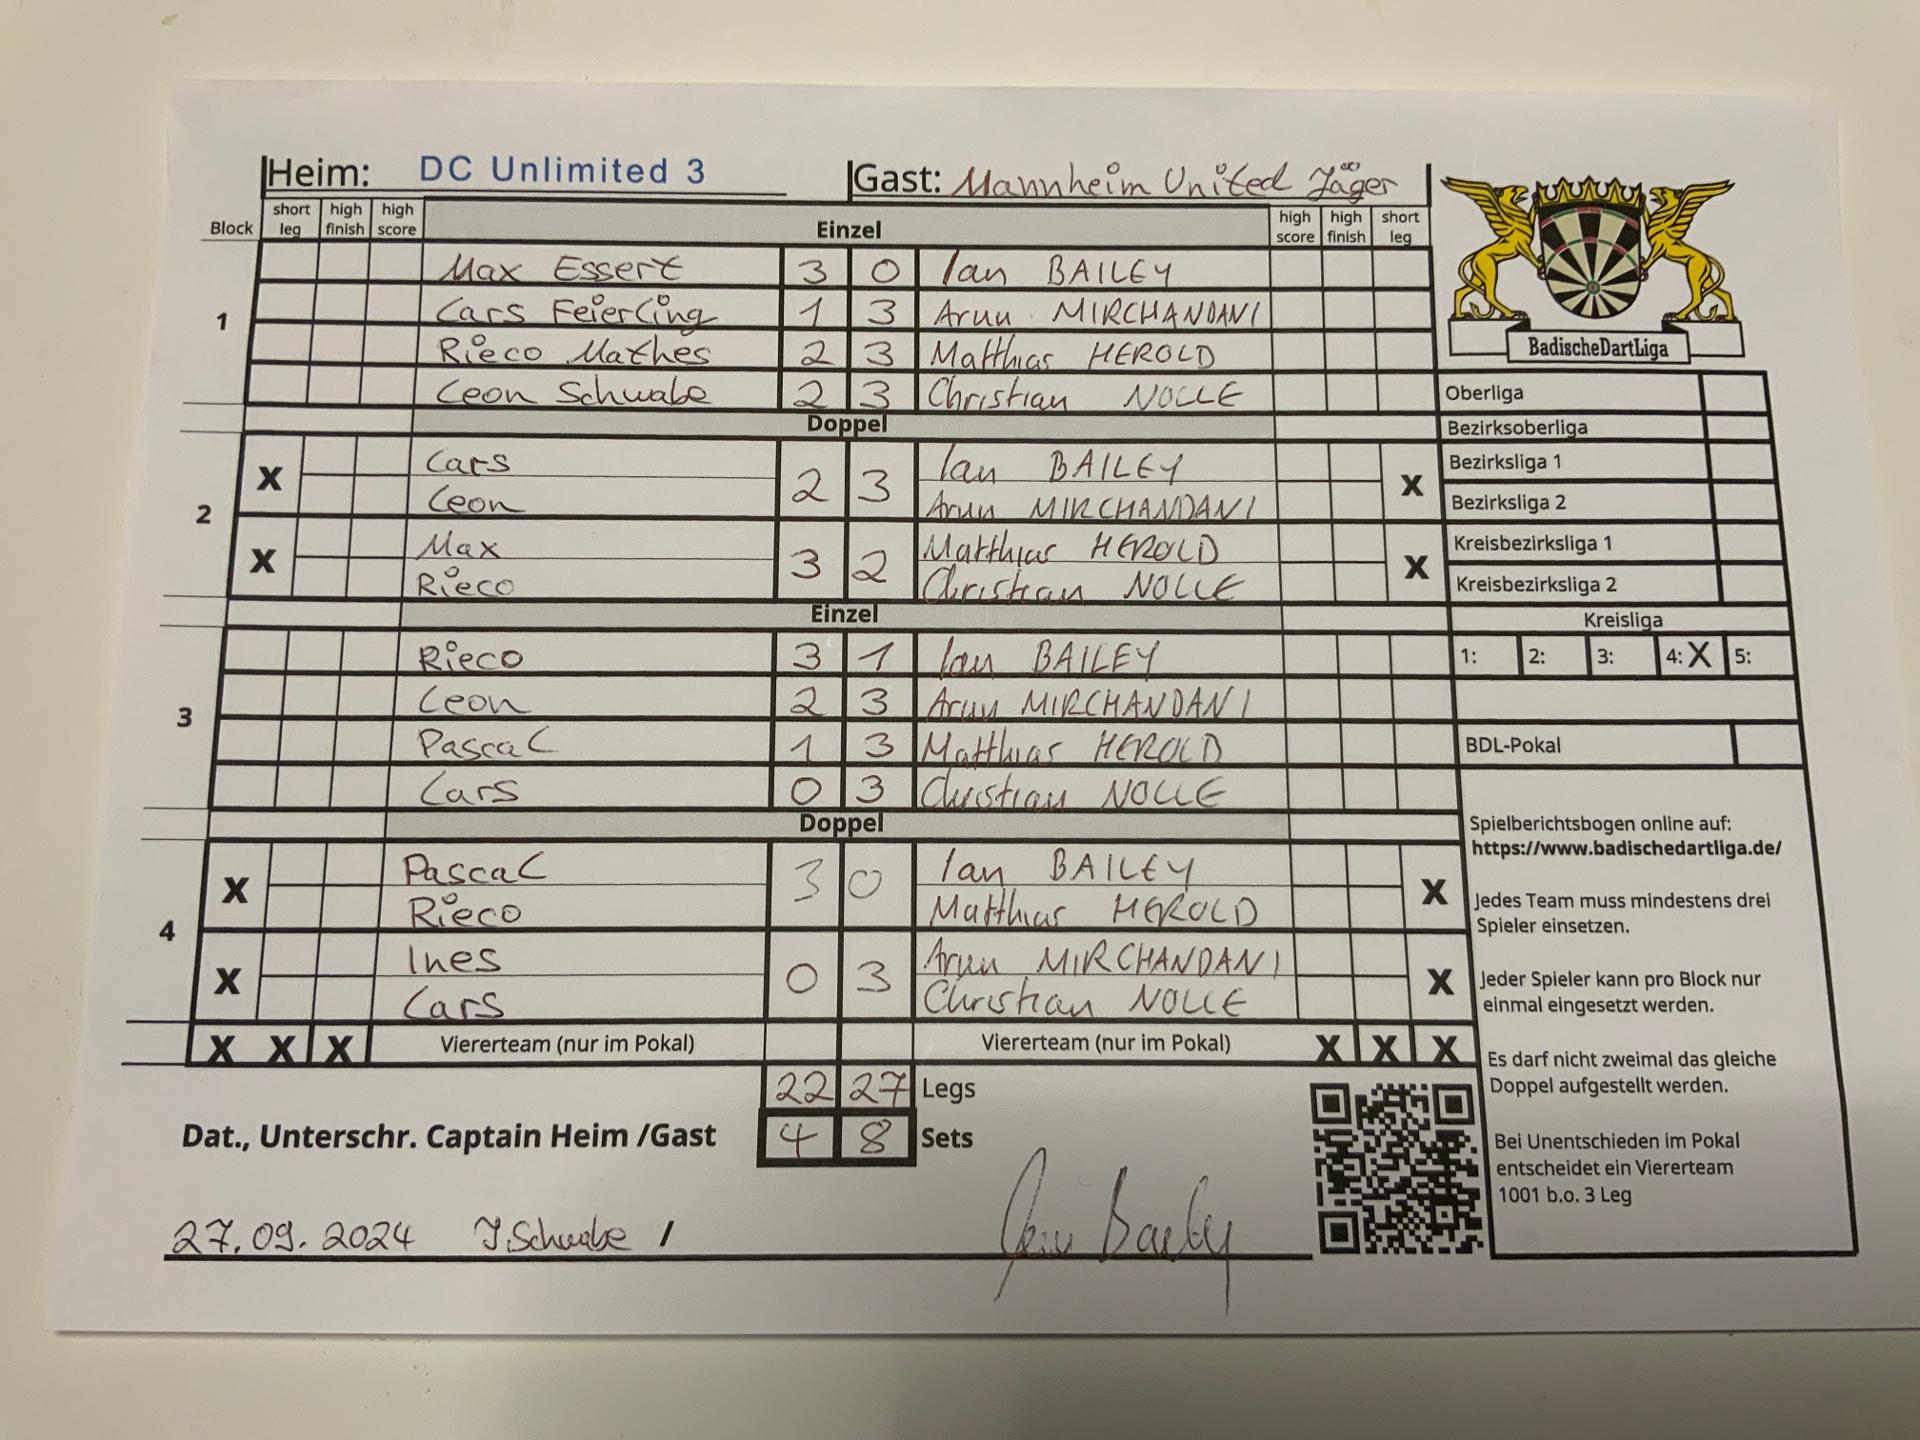 Heim: DC Unlimited 3 Gast: Mannheim United Jäger
Block short leg high finish high score Einzel high score high finish short leg
1
Max Essert 3 0 Ian BAILEY
Lars Feierling 1 3 Arun MIRCHANDANI
Rieco Mathes 2 3 Matthias HEROLD
Leon Schwabe 2 3 Christian NOLLE
Doppel
2
X Lars 2 3 Ian BAILEY X
Leon Arun MIRCHANDANI
X Max 3 2 Matthias HEROLD X
Rieco Christian NOLLE
Einzel
3
Rieco 3 1 Ian BAILEY
Leon 2 3 Arun MIRCHANDANI
Pascal 1 3 Matthias HEROLD
Lars 0 3 Christian NOLLE
Doppel
4
X Pascal 3 0 Ian BAILEY X
Rieco Matthias HEROLD
X Ines 0 3 Arun MIRCHANDANI X
Lars Christian NOLLE
X X X Viererteam (nur im Pokal) Viererteam (nur im Pokal) X X X
22 27 Legs
Dat., Unterschr. Captain Heim /Gast 4 8 Sets
27.09.2024 J.Schwabe / Bailey
BadischeDartLiga
Oberliga
Bezirksoberliga
Bezirksliga 1
Bezirksliga 2
Kreisbezirksliga 1
Kreisbezirksliga 2
Kreisliga
1: 2: 3: 4: X 5:
BDL-Pokal
Spielberichtsbogen online auf:
https://www.badischedartliga.de/
Jedes Team muss mindestens drei
Spieler einsetzen.
Jeder Spieler kann pro Block nur
einmal eingesetzt werden.
Es darf nicht zweimal das gleiche
Doppel aufgestellt werden.
Bei Unentschieden im Pokal
entscheidet ein Viererteam
1001 b.o. 3 Leg